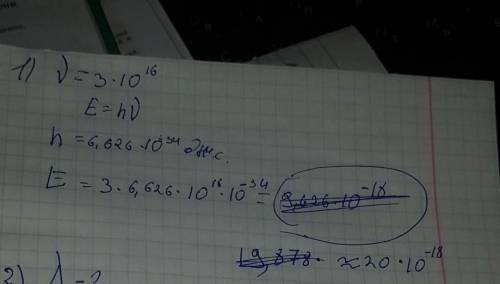 1) ν = 3·10¹⁶
E = hν
h = 6,626·10⁻³⁴ Дж·с.
E = 3·6,626·10¹⁶·10⁻³⁴ = 9,626·10⁻¹⁸
19,878· ≈ 20·10⁻¹⁸
2)